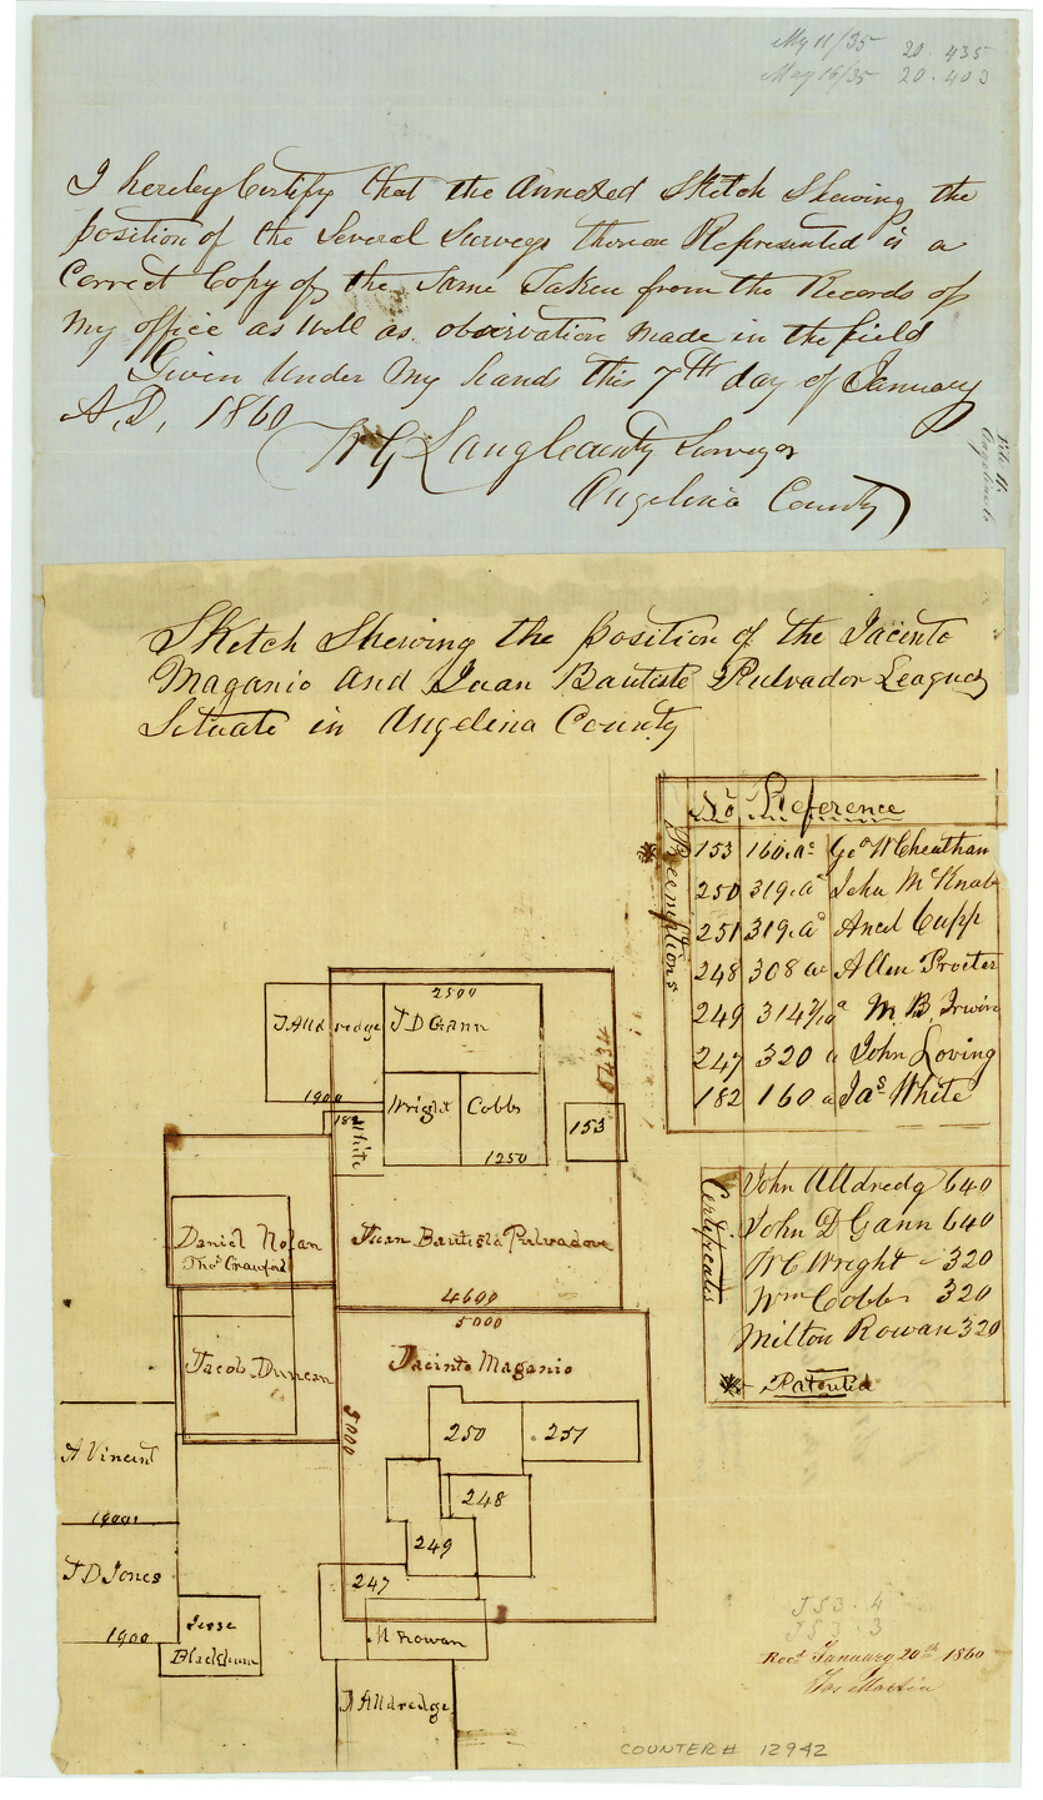 My 11/35 20.435
May 16/35 20.403
I hereby Certify that the Annexed Sketch Shewing the
position of the Several Surveys thereon Represented is a
Correct Copy of the Same Taken from the Records of
My office as Well as observation made in the field
Given Under My hands this 7th day of January
A.D. 1860
W G Lang County Surveyor
Angelina County
File 11.
Angelina Co
Sketch Shewing the position of the Jacinto
Maganio And Juan Bautiste Pulvador Leagues
Situate in Angelina County
No Reference
Preemptions
* 153 160 as Geo W Cheathan
250 319 as John McKnab
251 319 as Ancil Cupp
248 308 as Allen Procter
249 314 2/10 a M. B. Irwin
247 320 a John Loving
182 160 a Jas White
Certificates
John Alldredg 640
John D Gann 640
W C Wright - 320
Wm Cobbs 320
Milton Rowan 320
* Patented
2500
J Alldredge J D Gann
5434
1900
Wright Cobbs
182
White
153
1250
Daniel Nolan
Thos Crawford
Juan Bautista Pulvadore
4600
5000
Jacinto Maganio
Jacob Duncan
5000
250 251
A Vincent
248
1900
249
J D Jones
247
1900
Jesse
Blackburn
M Rowan
J Alldredge
J S 3 . 4
J S 3 . 3
Recd January 20th 1860
Jas Martin
COUNTER # 12942